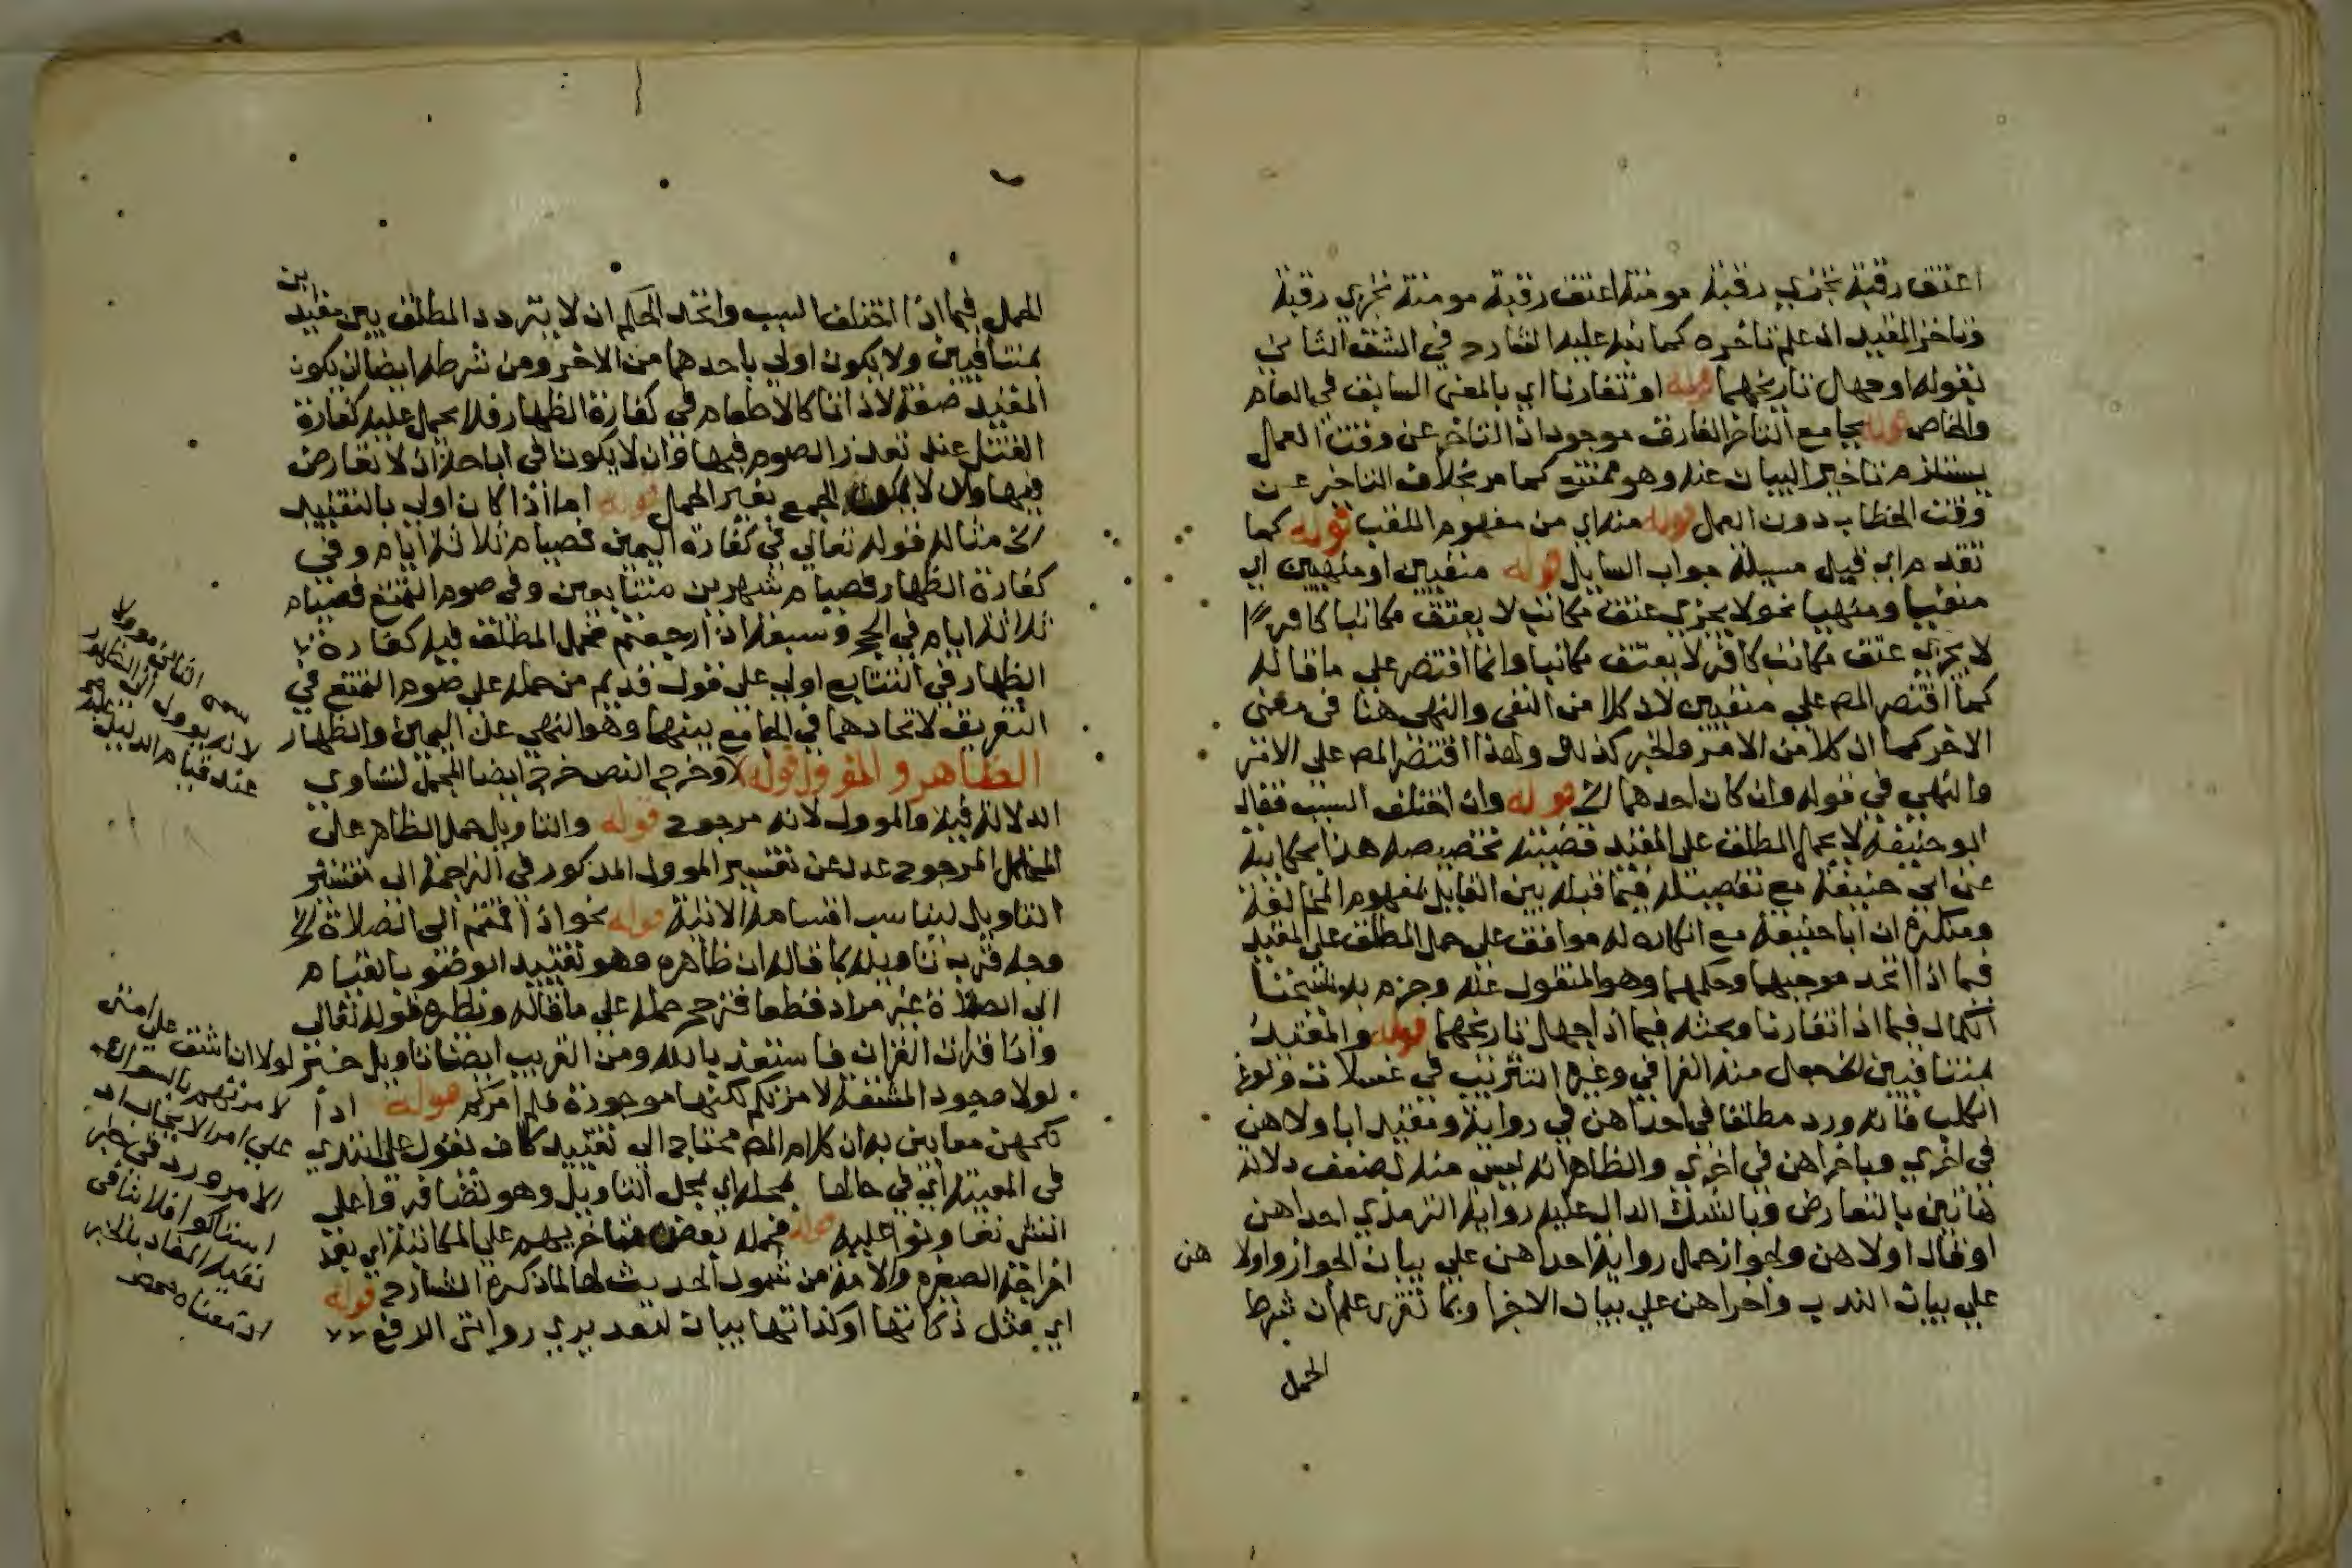 اعتق رقبة تجزي رقبة مومنة اعتق رقبة مومنة تجزي رقبة
وتاخر المقيد ان علم تاخره كما نبه عليه الشارح في الشق الثاني
بقوله او جهل تاريخهما قوله او تقارنا اي بالمعنى السابق في العام
والخاص قوله بجامع التاخر الفارق موجود اذ التاخر عن وقت العمل
يستلزم تاخير البيان عنه وهو ممتنع كما مر بخلاف التاخر عن
وقت الخطاب دون العمل قوله منه اي من مفهوم اللقب قوله كما
تقدم اي قبيل مسيلة جواب السايل قوله منفيين او منهيين اي
منفيا ومنهيا نحو لا يجزي عتق مكاتب لا يعتق مكاتبا كافرا
لا يجزي عتق مكاتب كافر لا يعتق مكاتبا وانما اقتصر على ما قاله
كما اقتصر المص على منفيين لان كلا من النفى والنهى هنا فى معنى
الاخر كما ان كلا من الامر والخبر كذلك ولهذا اقتصر المص على الامر
والنهي في قوله وان كان احدهما الخ قوله وان اختلف السبب فقال
ابو حنيفة لا يحمل المطلق على المقيد قضيته تخصيصه هذا بحكايته
عن ابي حنيفة مع تفصيله فيما قبله بين القايل بمفهوم المخالفة
ومنكره ان ابا حنيفة مع انكاره له موافق على حمل المطلق على المقيد
فيما اذا اتحد موجبهما وحكمهما وهو المنقول عنه وجزم به شيخنا
الكمال فيما اذا تقارنا وبحثه فيما اذا جهل تاريخهما قوله والمقيد
بمتنافيين الخ جعل منه القرافي وغيره التتريب في غسلات ولوغ
الكلب فانه ورد مطلقا في احداهن في رواية ومقيدا باولاهن
في اخرى وباخراهن في اخرى والظاهر انه ليس منه لضعف دلالة
هاتين بالتعارض وبالشك الدال عليه رواية الترمذي احداهن
او قال اولاهن ولجواز حمل رواية احداهن على بيان الجواز واولاهن
على بيان الندب واخراهن على بيان الاجزا وبما تقرر علم ان شرط
الحمل
الحمل فيما اذا اختلف السبب واتحد الحكم ان لا يتردد المطلق بين مقيدين
بمتنافيين ولا يكون اولى باحدهما من الاخر ومن شرطه ايضا ان يكون
المقيد صفة لا ذاتا كالاطعام في كفارة الظهار فلا يحمل عليه كفارة
القتل عند تعذر الصوم فيها وان لا يكونا في اباحة اذ لا تعارض
فيها وان لا يمكن الجمع بغير الحمل قوله اما اذا كان اولى بالتقييد
الخ مثاله قوله تعالى في كفارة اليمين فصيام ثلاثة ايام وفي
كفارة الظهار فصيام شهرين متتابعين وفي صوم التمتع فصيام
ثلاثة ايام في الحج وسبعة اذا رجعتم فحمل المطلق فيه كفارة
الظهار في التتابع اولى على قول قديم من حمله على صوم التمتع في
التفريق لاتحادهما في الجامع بينهما وهو النهي عن اليمين والظهار
الظاهر والمؤول قوله وخرج النص خرج ايضا المجمل لتساوي
الدلالة فيه والموول لانه مرجوح قوله والتاويل حمل الظاهر على
المحتمل المرجوح عدل عن تفسير الموول المذكور في الترجمة الى تفسير
التاويل ليناسب اقسامه الاتية قوله نحو اذا قمتم الى الصلاة الخ
وجه قرب تاويله بما قاله ان ظاهره وهو تقييد الوضو بالقيام
الى الصلاة غير مراد قطعا فترجح حمله على ما قاله ونظيره قوله تعالى
واذا قرات القران فاستعذ بالله ومن القريب ايضا تاويل خبر لولا ان اشق على امتى
لولا وجود المشقة لامرتكم لكنها موجودة فلم امركم قوله اذا
نكحهن معا بين به ان كلام المص محتاج الى تقييد
في المعية اي في حالها بمحله اي بمحل التاويل وهو
قوله فحمله بعض متاخريهم على المكاتبة اي بعد
اخراجه الصغيرة والامة من شمول الحديث لها لما ذكره الشارح قوله
اي مثل ذكاتها او كذكاتها بيان لتقديري روايتى الرفع
سمى الثانى موولا
لانه يوول الى الظهور
عند قيام الدليل عليه
لامرتهم بالسواك
على امر الايجاب
الامر ورد في خبر
استاكو